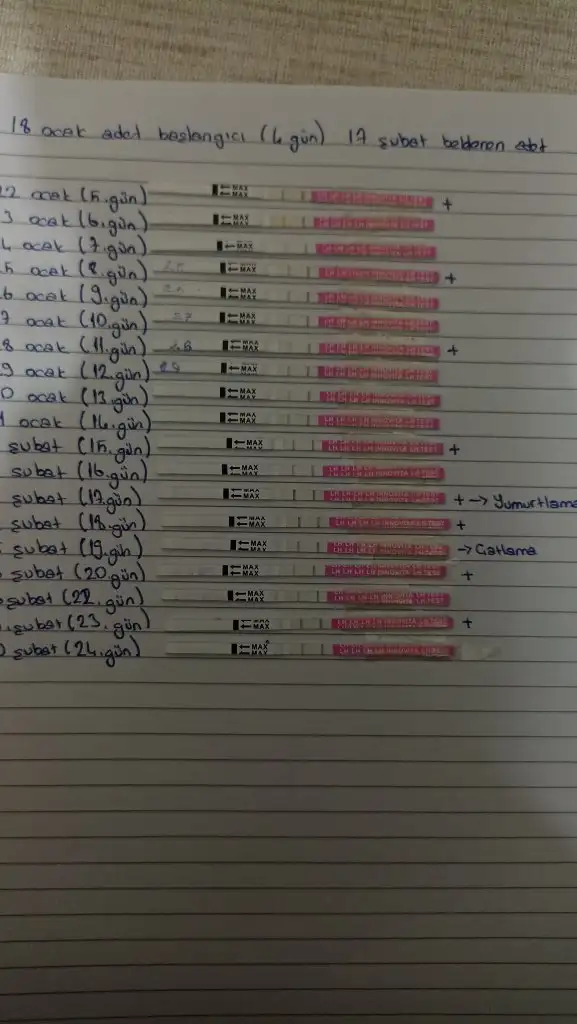 18 ocak adet başlangıcı (4 gün) 17 şubat beklenen adet
22 ocak (5.gün) MAX MAX +
3 ocak (6.gün) MAX MAX
4 ocak (7.gün) MAX
5 ocak (8.gün) 25 MAX MAX +
6 ocak (9.gün) MAX MAX
7 ocak (10.gün) 27 MAX MAX
8 ocak (11.gün) 28 MAX MAX +
9 ocak (12.gün) 29 MAX MAX
0 ocak (13.gün) MAX MAX
1 ocak (14.gün) MAX MAX
şubat (15.gün) MAX MAX LH LH LH LH INNOVITA LH TEST +
şubat (16.gün) MAX MAX
şubat (17.gün) MAX MAX + → Yumurtlama
şubat (18.gün) MAX MAX LH LH LH LH INNOVITA LH TEST +
şubat (19.gün) MAX MAX → Çatlama
şubat (20.gün) MAX MAX LH LH LH LH INNOVITA LH TEST +
şubat (22.gün) MAX MAX
şubat (23.gün) MAX MAX +
0 şubat (24.gün) MAX MAX